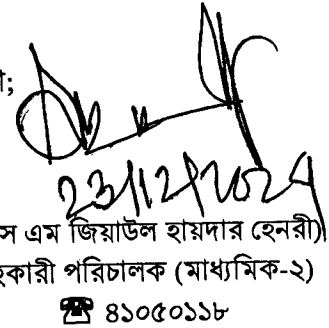 ;
23/12/2024
স এম জিয়াউল হায়দার হেনরী)
হকারী পরিচালক (মাধ্যমিক-২)
☎ ৪১০৫০১১৮